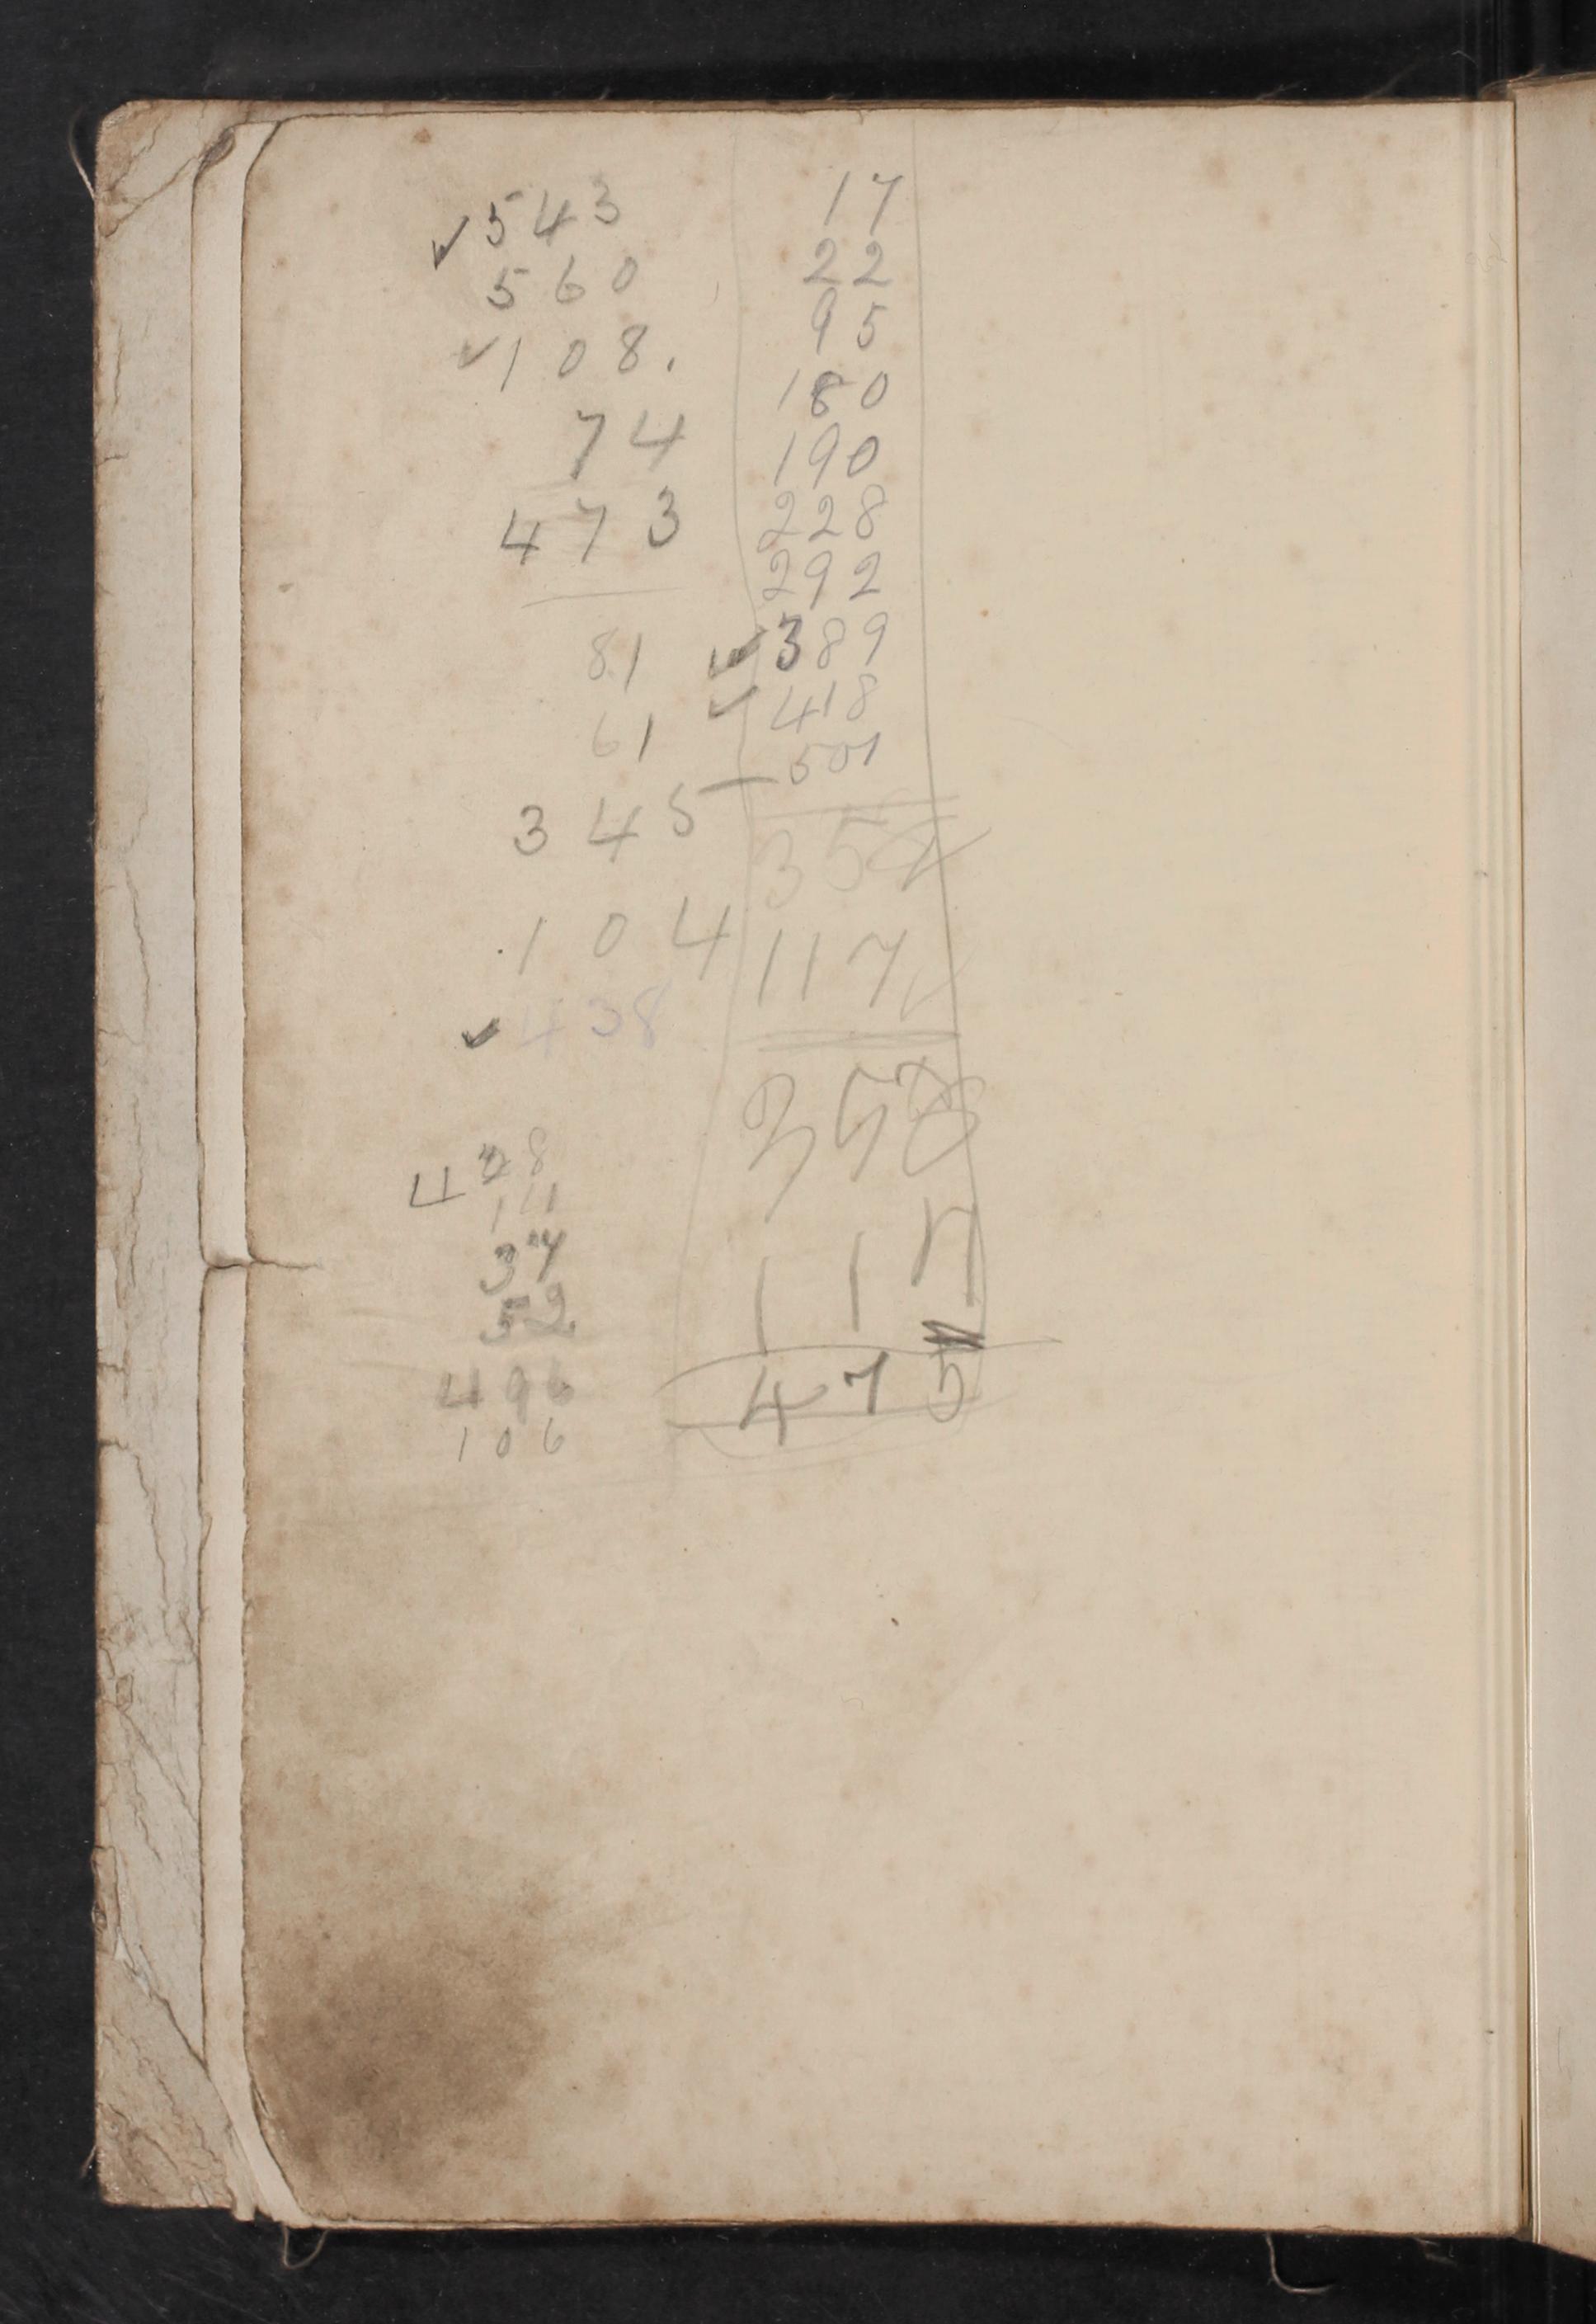 ✓ 543
560
✓ 108.
74
473
81
61
345
104
✓ 438
111
52
496
106
17
22
95
180
190
228
292
✓ 389
✓ 418
501
117
117
475